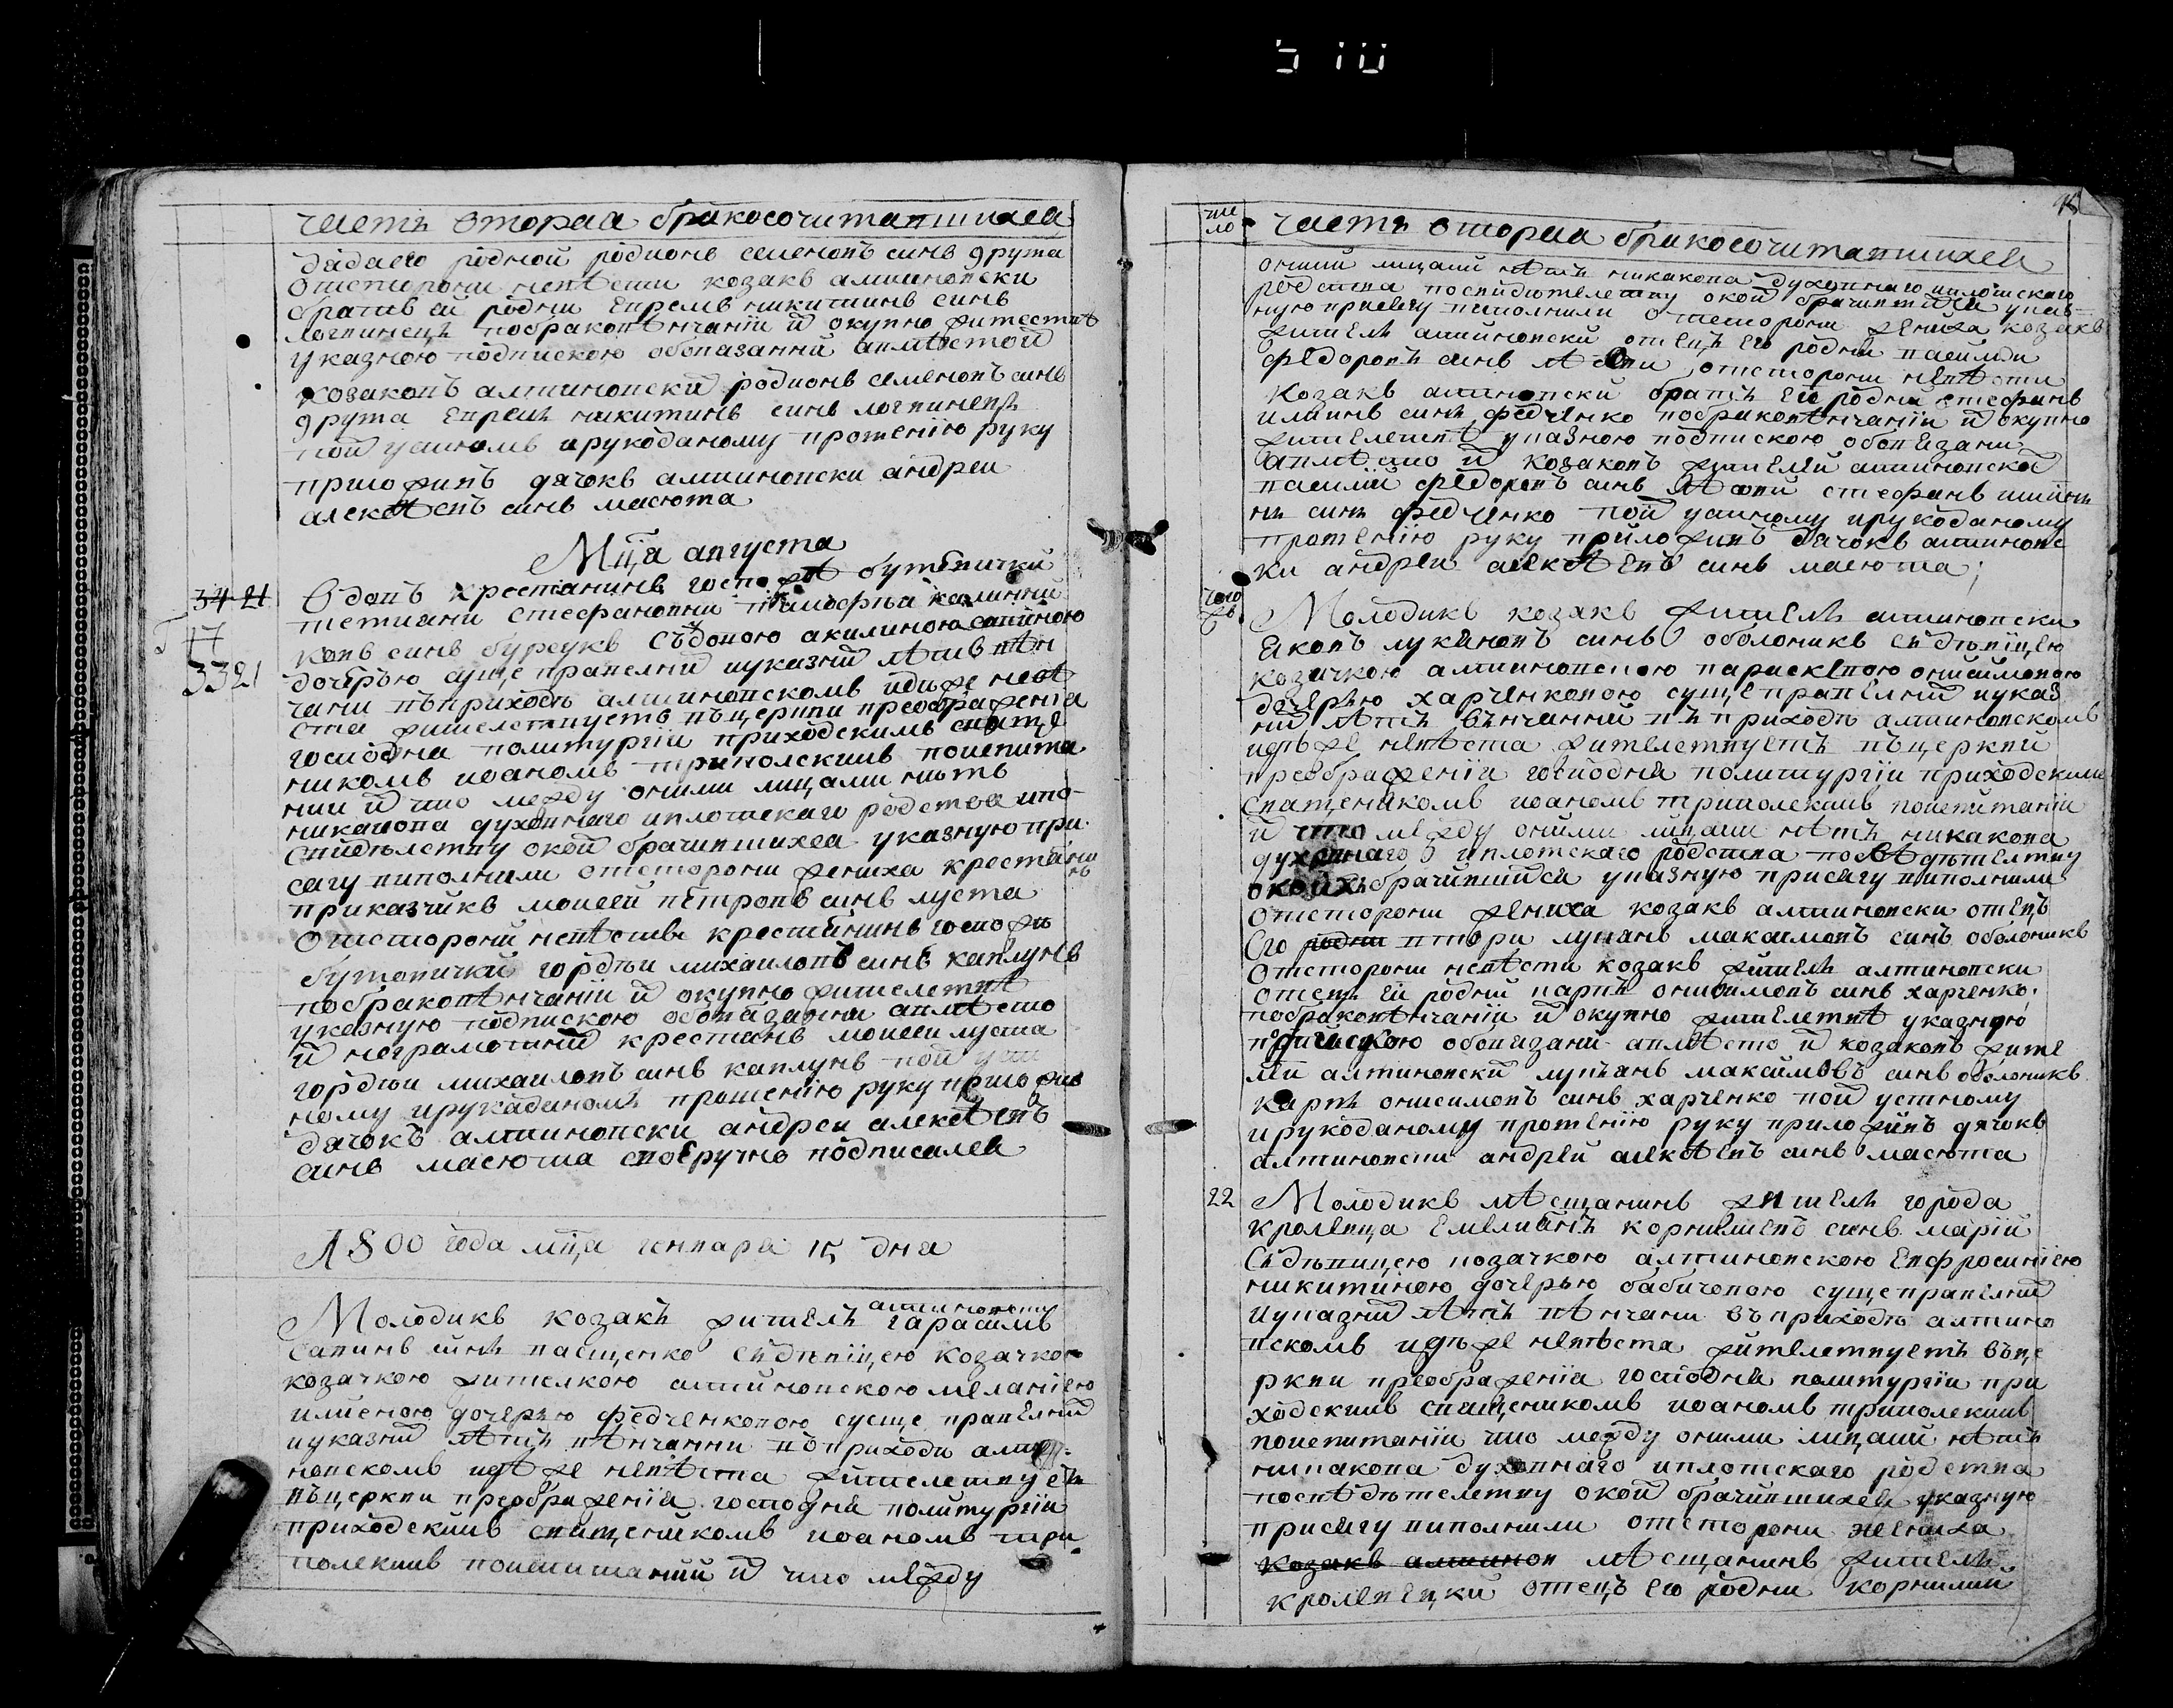 часть вторая бракосочитавшихся
дядаего родной родионъ семеновъ синъ друта
отсторони невѣсти козакъ алтиновски
братъ ей родни Евремъ никитинъ синъ
логвинецъ побраковѣнчаніи и окупно житестве
указною подпискою обовязанни авмѣстои
козаковъ алтиновски родионъ семеновъ синъ
друта Евремъ никитинъ синъ логвинецъ
пои устномъ ирукоданому прошенію руку
приложивъ дячокъ алтиновски андреи
алексѣевъ синъ масюта
Мца августа
34 21
Вдовъ хрестанинъ госпожѣ бутовички
тетиани стефановни тимофѣй калинни
17
ковъ синъ бурсукъ Съдовою акилиною
3321
дочерью суще правелнй иуказнй лѣтъ вѣн
чани въприходѣ алтиновскомъ идѣже невѣ
ста жителствуетъ въцеркви преображенія
господня политургіи приходскимъ свяще
никомъ иоаномъ триполскимъ поиспита
нии и что между оними лицами нѣтъ
никакова духовнаго иплотскаго родства ипо
свидѣлству окои брачившихся указную при
сягу виполнили отсторони жениха крестянинъ
приказчикъ моисей петровъ синъ луста
отсторони невѣсти крестянинъ госпожи
бутовички гордѣи михаиловъ синъ каплунъ
побраковѣнчаніи и окупно жителствѣ
указную подпискою обовязанни авмѣсто
и неграмотнй крестянъ моисеи луста
гордѣи михаиловъ синъ каплунъ пои уст
ному ирукоданомъ прошенію руку приложив
дячокъ алтиновски андреи алексѣевъ
синъ масюта своеручно подписался
1800 года мца генваря 15 дня
алтиновски
Молодикъ козакъ жителъ гарасимъ
Савинъ синъ пащенко Здѣвицею козачкою
козачкою жителкою алтиновскою меланіею
илиеною дочерью федченковою сусще правелнй
иуказнй лѣтъ вѣнчанни въприходѣ алти
новскомъ идѣже невѣста жителствуетъ
въцеркви преображенія господня политургіи
приходскимъ священикомъ иоаномъ три
полскимъ поиспитаній и что между
чи
сло
часть вторая бракосочитавшихся
оними лицами нѣтъ никакова духовнаго иплотскаго
родства посвидѣтелству окои брачившися указ
ную присягу виполнили отсторони жениха козакъ
жителъ алтиновски отецъ его родни василій
федоровъ синъ отсторони невѣсти
козакъ алтиновски братъ ей родни стефанъ
илиинъ синъ федченко побраковѣнчаніи и окупно
жителствѣ указною подпискою обовязани
авмѣсто и козаковъ жителей алтиновской
василій федоровъ синъ стефанъ илиинъ
синъ федченко пои устному ирукоданому
прошенію руку приложивъ дячокъ алтиновс
ки андреи алексѣевъ синъ масюта
того
жъ
Молодикъ козакъ жителъ алтиновски
яковъ лукяновъ синъ оболоникъ Здѣвицею
козачкою алтиновскою параскевою онисимовою
дочерью харченковою суще правелнй иуказ
нй лѣтъ вѣнчанній въ приходѣ алтиновскомъ
идѣже невѣста жителствуетъ въцеркви
преображеніи господня политургіи приходскимъ
священикомъ иоаномъ триполскимъ поиспитаніи
и что между оними лицами нѣтъ никакова
духовнаго иплотскаго родства посвѣдѣтелству
окоихъ брачившийся указную присягу виполнили
отсторони жениха козакъ алтиновски отецъ
Его родни втори лукянъ максимовъ синъ оболоникъ
отсторони невѣсти козакъ жителъ алтиновски
отецъ ей родній карпъ онисимовъ синъ харченко
побраковѣнчаніи и окупно жителствѣ указную
подпискою обовязани авмѣсто и козаковъ жите
лей алтиновски лукянъ максимовъ синъ оболоникъ
карпъ онисимовъ синъ харченко пои устному
ирукоданому прошенію руку приложивъ дячокъ
алтиновски андрей алексѣевъ синъ масюта
22
Молодикъ мѣщанинъ жителъ города
кролевца Емелиянъ корнилиевъ синъ марій
Здѣвицею козачкою алтиновскою Евфросиніею
никитиною дочерью бабичовою суще правелнй
иуказнй лѣтъ вѣнчани въ приходѣ алтино
вскомъ идѣже невѣста жителствуетъ въце
ркви преображеніа господня политургіи при
ходскимъ священикомъ иоаномъ триполскимъ
поиспитаніи что между оними лицами нѣтъ
никакова духовнаго иплотскаго родства
посвѣдѣтелству окои брачившихся указную
присягу виполнили отсторони жениха
козакъ алтинов мѣщанинъ жителъ
кролевецки отецъ его родни корнилий